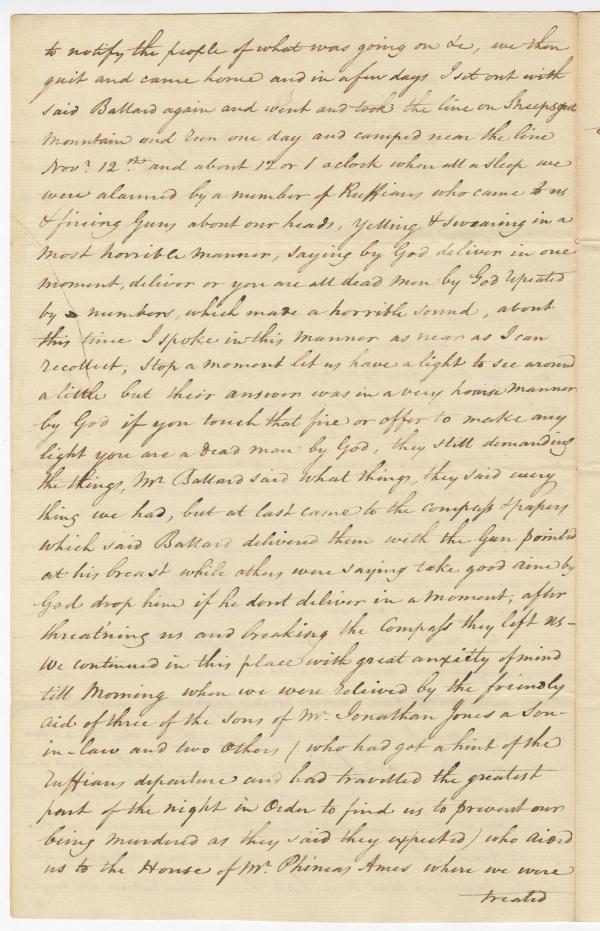 to notify the people of what was going on &c, we then
quit and came home and in a few days I set out with
said Ballard again and went and took the line on Sheepsgut
Mountain and run one day and camped near the line
Novr. 12th and about 12 or 1 aclock when all a sleep we
were alarmed by a number of Ruffians who came to us
& fireing Guns about our heads, Yelling & swearing in a
most horrible manner, saying by God deliver in one
moment, deliver or you are all dead men by God repeated
by numbers, which made a horrible sound, about
this time I spoke in this manner as near as I can
recollect; Stop a moment let us have a light to see around
a little but their answer was in a very hoarse manner
by God if you touch that fire or offer to make any
light you are a dead man by God, they still demanding
the things, Mr. Ballard said what things, they said every
thing we had, but at last came to the compass & papers
which said Ballard delivered them with the Gun pointed
at his breast while others were saying take good aime by
God drop him if he dont deliver in a moment, after
threat'ning us and breaking the Compass they left us-
We continued in this place with great anxiety of mind
till Morning when we were releived by the friendly
aid of three of the sons of Mr. Jonathan Jones a Son-
in-law and two others (who had got a hint of the
ruffians departure and had travelled the greatest
part of the night in Order to find us to prevent our
being murdered as they said they expected) who aided
us to the House of Mr. Phineas Ames where we were
treated